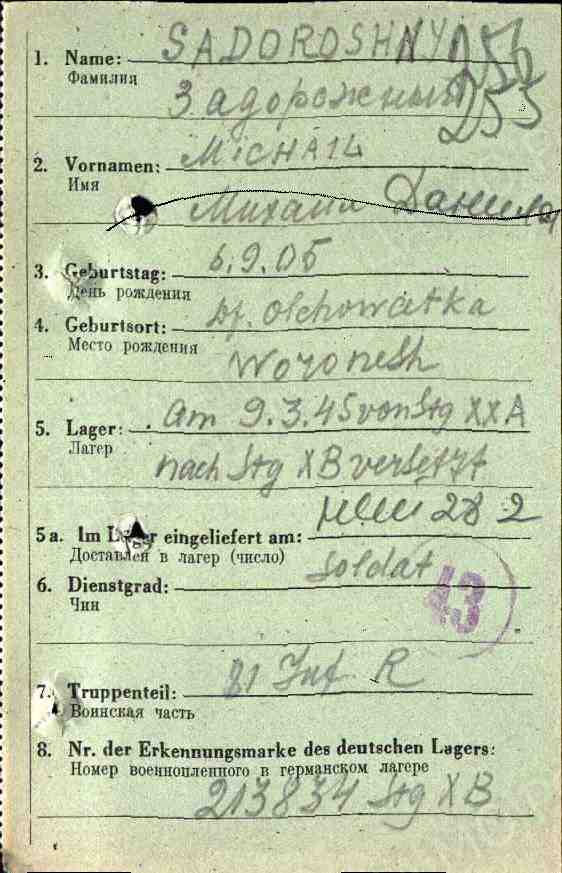 1. Name: SADOROSHNYJ 256
Фамилия Задорожный 253
2. Vornamen: MICHAIL
Имя Михаил Данилов
3. Geburtstag: 6.9.05
День рождения
4. Geburtsort: Df. Olchowatka
Место рождения Woronesh
5. Lager: Am 9.3.45 von Stg XX A
Лагер nach Stg X B versetzt
5a. Im Lager eingeliefert am: 28 2
Доставлен в лагер (число)
6. Dienstgrad: Soldat
Чин 43
7. Truppenteil: 81 Inf R
Воинская часть
8. Nr. der Erkennungsmarke des deutschen Lagers:
Номер военнопленного в германском лагере
213834 Stg X B